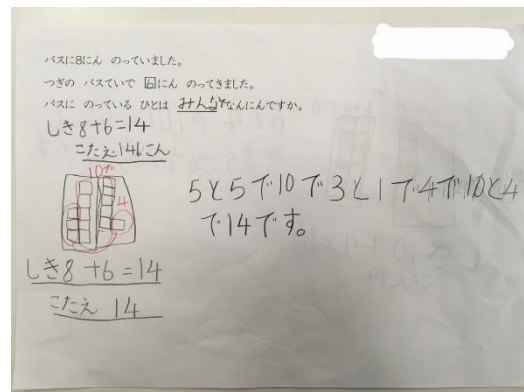 バスに8にん のっていました。
つぎの バスていで 6にん のってきました。
バスに のっている ひとは みんなで なんにんですか。
しき8+6=14
こたえ14にん
10で
4
5と5で10で3と1で4で10と4
で14です。
しき8+6=14
こたえ 14